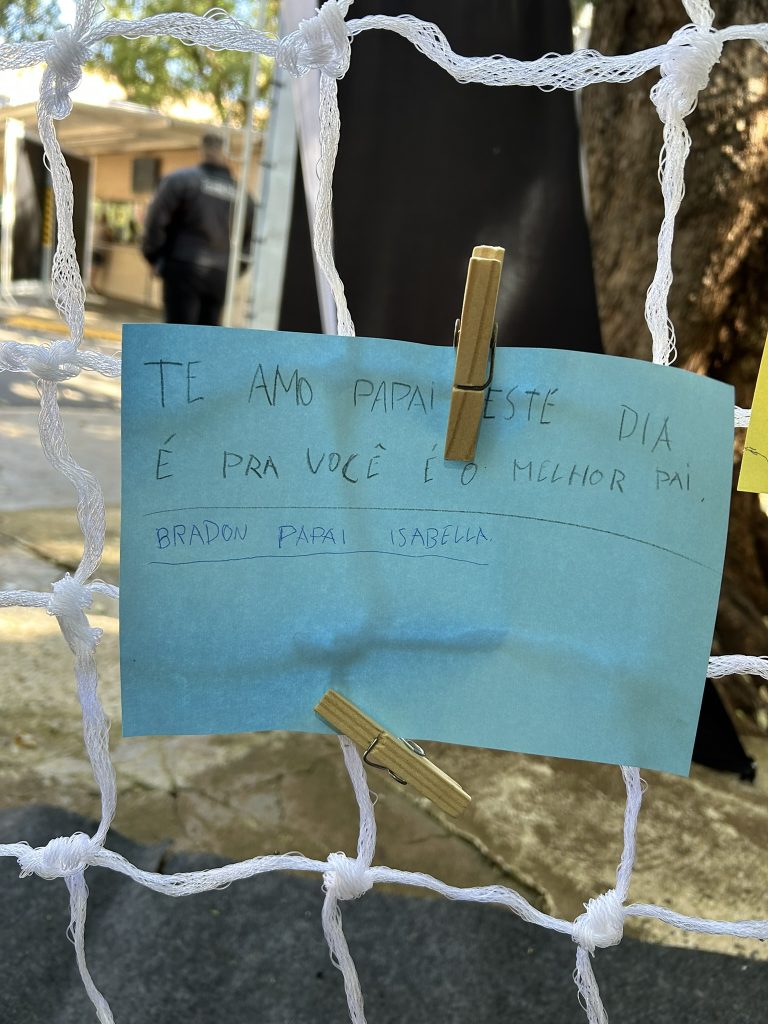 TE AMO PAPAI ESTE DIA
É PRA VOCÊ É O MELHOR PAI.
BRADON PAPAI ISABELLA.